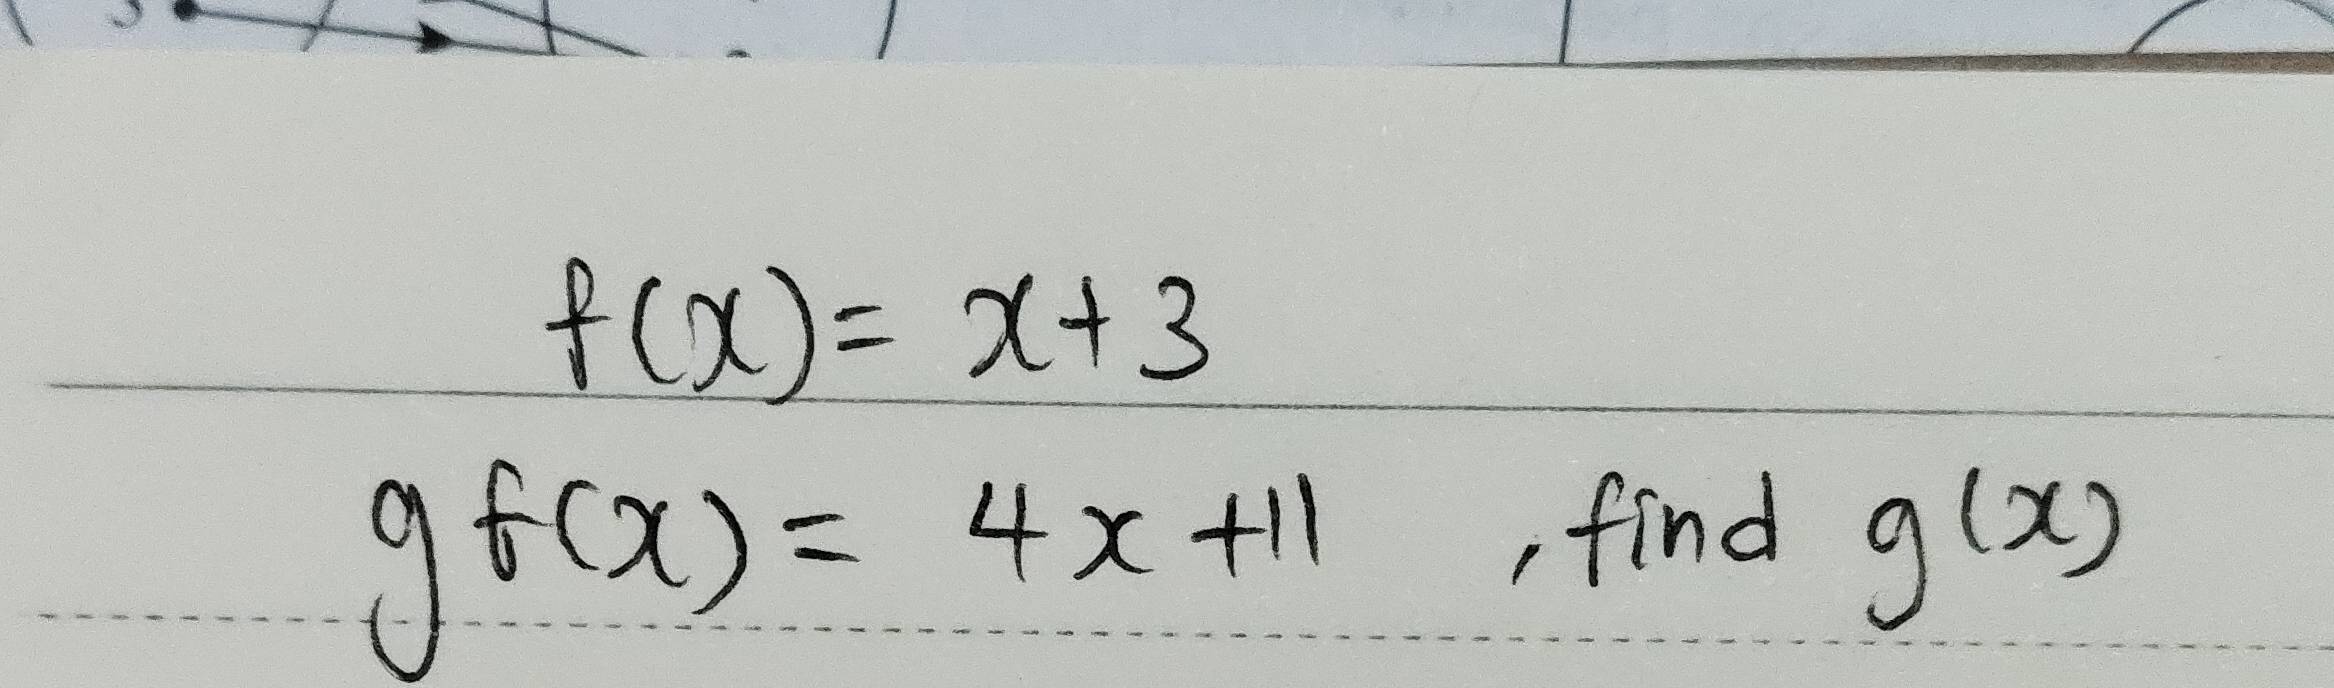 f(x) = x+3
gf(x) = 4x+11 , find g(x)